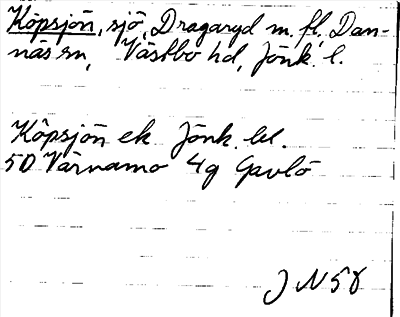 Köpsjön, sjö, Dragaryd m. fl, Dan-
näs sn, Västbo hd, Jönk. l.
Köpsjön ek Jönk. bl.
5D Värnamo 4g Gavlö
J N 58